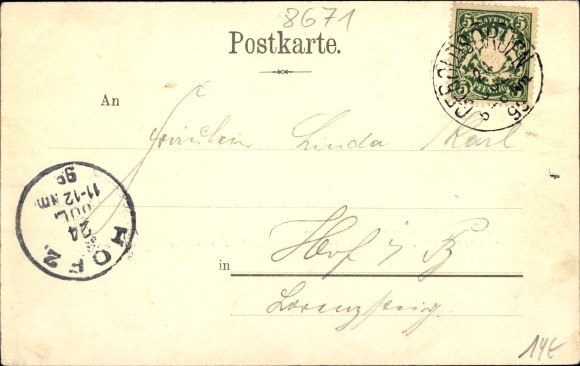 8671
Postkarte.
5 BAYERN 5
5 PFENNIG 5
An
Fräulein Linda Karl
HOF 2.
24
JUL.
11-12 Nm.
98
in Hof i/B
Lorenzsteig
14€